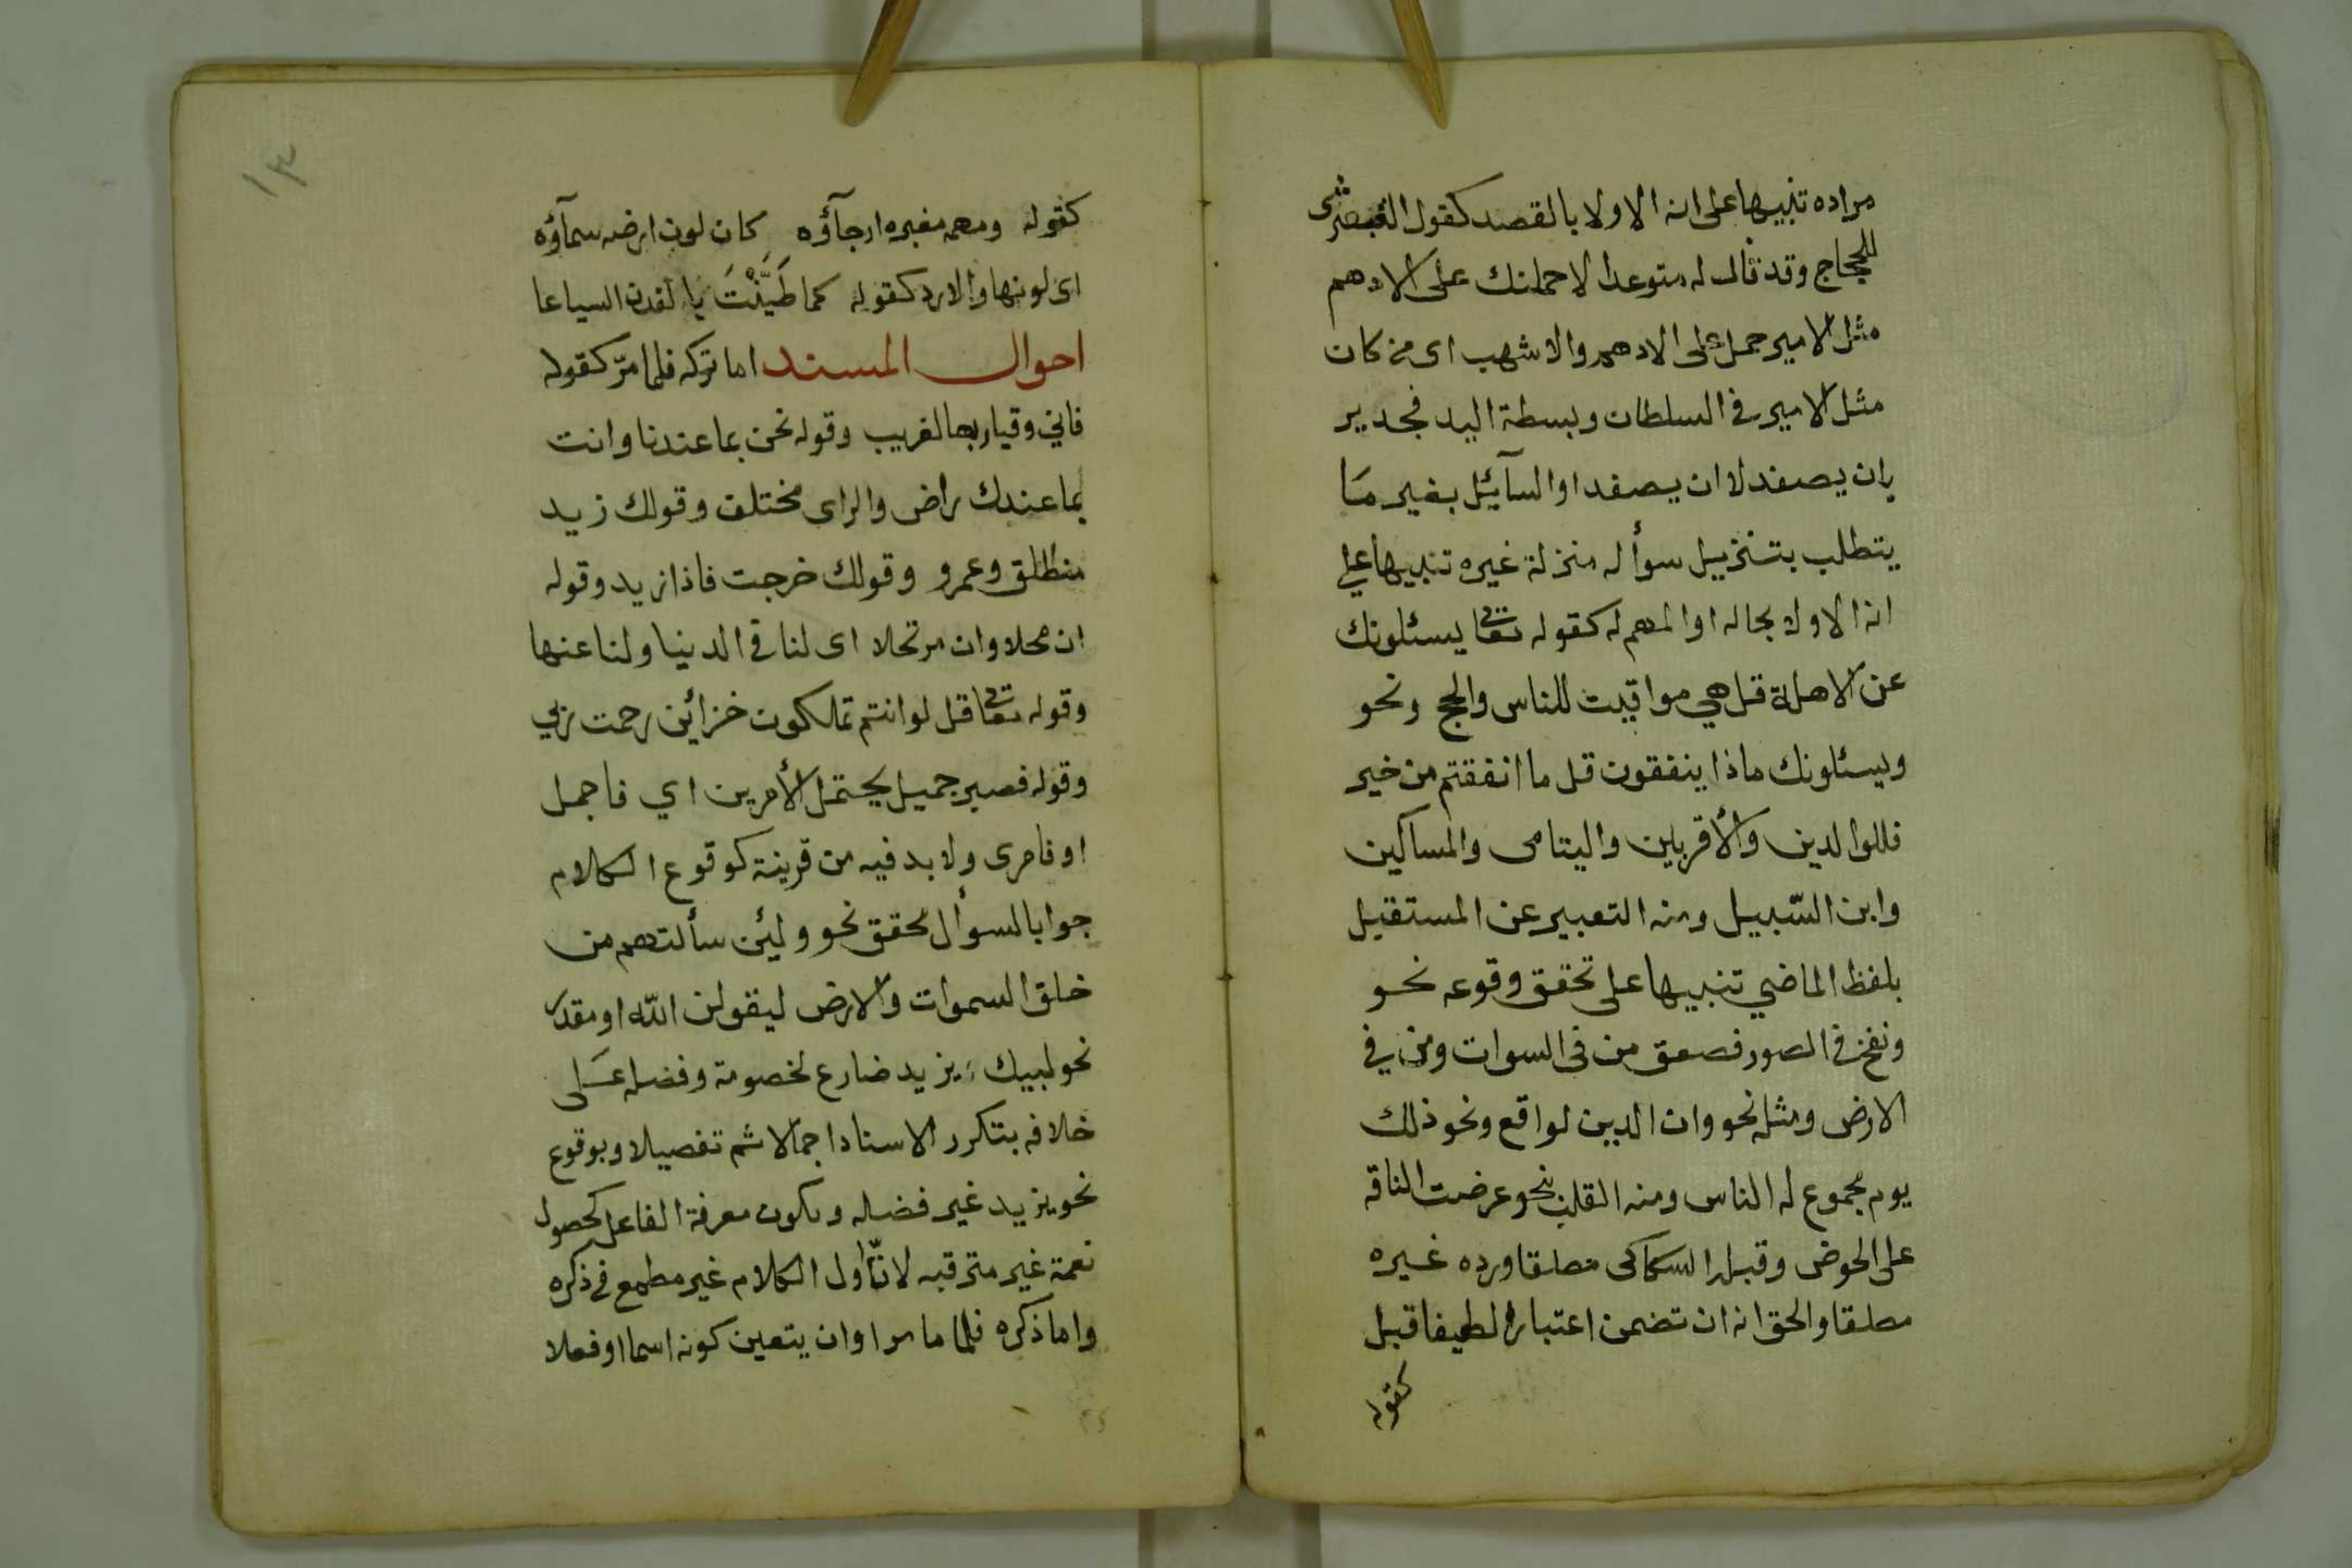 مراده تنبيها على انه الاولا بالقصد كقول القبعثرى
للحجاج وقد قال له متوعدا لاحملنك على الادهم
مثل الامير حمل على الادهم والاشهب اى من كان
مثل الامير فى السلطان وبسطة اليد فجدير
بان يصفد لا ان يصفد او السآئل بغير مَا
يتطلب بتنزيل سوأله منزلة غيره تنبيها على
انه الاولا بحاله او المهم له كقوله تعا يسئلونك
عن الاهلة قل هي مواقيت للناس والحج ونحو
ويسئلونك ماذا ينفقون قل ما انفقتم من خير
فللوالدين والأقربين واليتامى والمساكين
وابن السّبيل ومنه التعبير عن المستقبل
بلفظ الماضي تنبيها على تحقق وقوعه نحو
ونفخ فى الصور فصعق من فى السوات ومن في
الارض ومثله نحو وان الدين لواقع ونحو ذلك
يوم مجموع له الناس ومنه القلب نحو عرضت الناقه
على الحوض وقبله السكاكى مطلقا ورده غيره
مطلقا والحق انه ان تضمن اعتبارا لطيفا قبل
كقوله
١٣
كقوله ومهمه مغبره ارجآؤه كان لون ارضه سمآؤه
اى لونها والا رد كقوله كما طَيَّنْتَ بالفدن السياعا
احوال المسند اما تركه فلما مرّ كقوله
فاني وقيار بها لغريب وقوله نحن بما عندنا وانت
بما عندك راض والراى مختلف وقولك زيد
منطلق وعمرو وقولك خرجت فاذا زيد وقوله
ان محلا وان مرتحلا اى لنا فى الدنيا ولنا عنها
وقوله تعا قل لو انتم تملكون خزائن رحمت ربي
وقوله فصبر جميل يحتمل الأمرين اي فاجمل
او فامرى ولا بد فيه من قرينة كوقوع الكلام
جوابا لسوأل محقق نحو ولئن سألتهم من
خلق السموات والارض ليقولن اللّه او مقدر
نحو لبيك يزيد ضارع لخصومة وفضله عَلى
خلافه بتكرر الاسناد اجمالا ثم تفصيلا وبوقوع
نحو يزيد غير فضله وبكون معرفة الفاعل كحصول
نعمة غير مترقبه لانّ اول الكلام غير مطمع فى ذكره
واما ذكره فلما مر او ان يتعين كونه اسما او فعلا